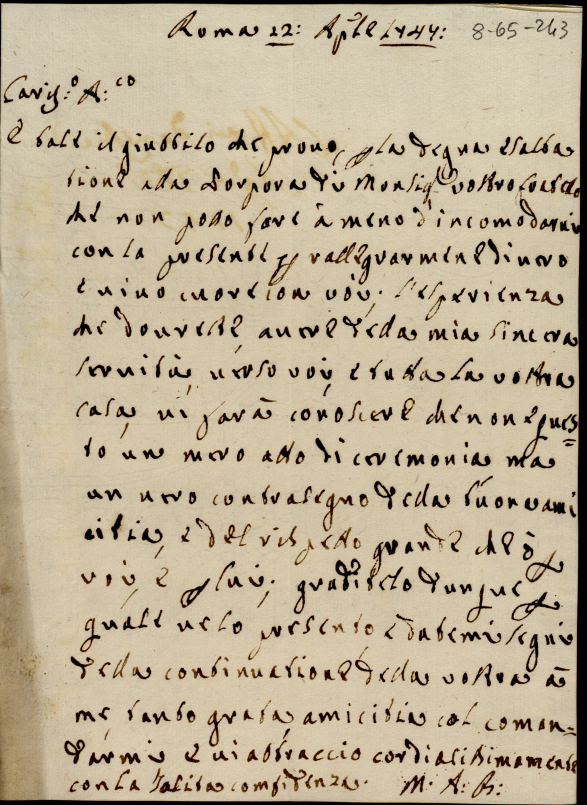 Roma 22: Ap.le 1747: 8-65-243
Cariss:o A:co
È tale il giubbilo che provo, p la degna esalta
tione alla Porpora di Monsig.r vostro fratello
che non posso fare à meno d'incomodarvi
con la presente p rallegrarmene di vero
e vivo cuore con voi; l'esperienza
che dovreste, avere della mia sincera
servitù, verso voi, e tutta la vostra
casa, vi farà conoscere che non è ques=
to, un mero atto di ceremonia ma
un vero contrasegno della buon ami
citia, e del rispetto grande che ò p
voi, e p lui; graditelo dunque p
quale ve lo presento, e datemi segni
della continuatione della vostra à
me, tanto grata, amicitia col coman=
darmi e vi abbraccio cordialissimamente
con la solita confidenza. M: A: B: